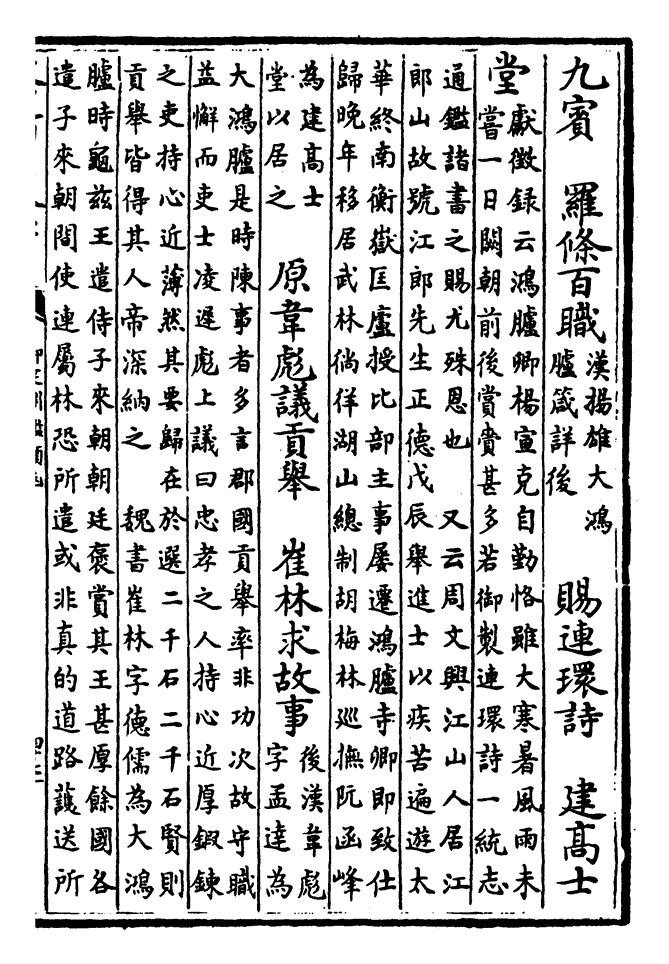 九賓　羅條百職　漢揚雄大鴻
臚箴詳後　賜連環詩　建高士
堂　獻徵録云鴻臚卿楊宣克自勤恪雖大寒暑風雨未
嘗一日闕朝前後賞賚甚多若御製連環詩一統志
通鑑諸書之賜尤殊恩也　又云周文興江山人居江
郎山故號江郎先生正德戊辰舉進士以疾苦遍遊太
華終南衡嶽匡廬授比部主事屢遷鴻臚寺卿即致仕
歸晚年移居武林徜徉湖山總制胡梅林巡撫阮函峰
為建高士
堂以居之　原韋彪議貢舉　崔林求故事　後漢韋彪
字孟達為
大鴻臚是時陳事者多言郡國貢舉率非功次故守職
益懈而吏士凌遲彪上議曰忠孝之人持心近厚鍛鍊
之吏持心近薄然其要歸在於選二千石二千石賢則
貢舉皆得其人帝深納之　魏書崔林字德儒為大鴻
臚時龜茲王遣侍子來朝朝廷褒賞其王甚厚餘國各
遣子來朝間使連屬林恐所遣或非真的道路護送所